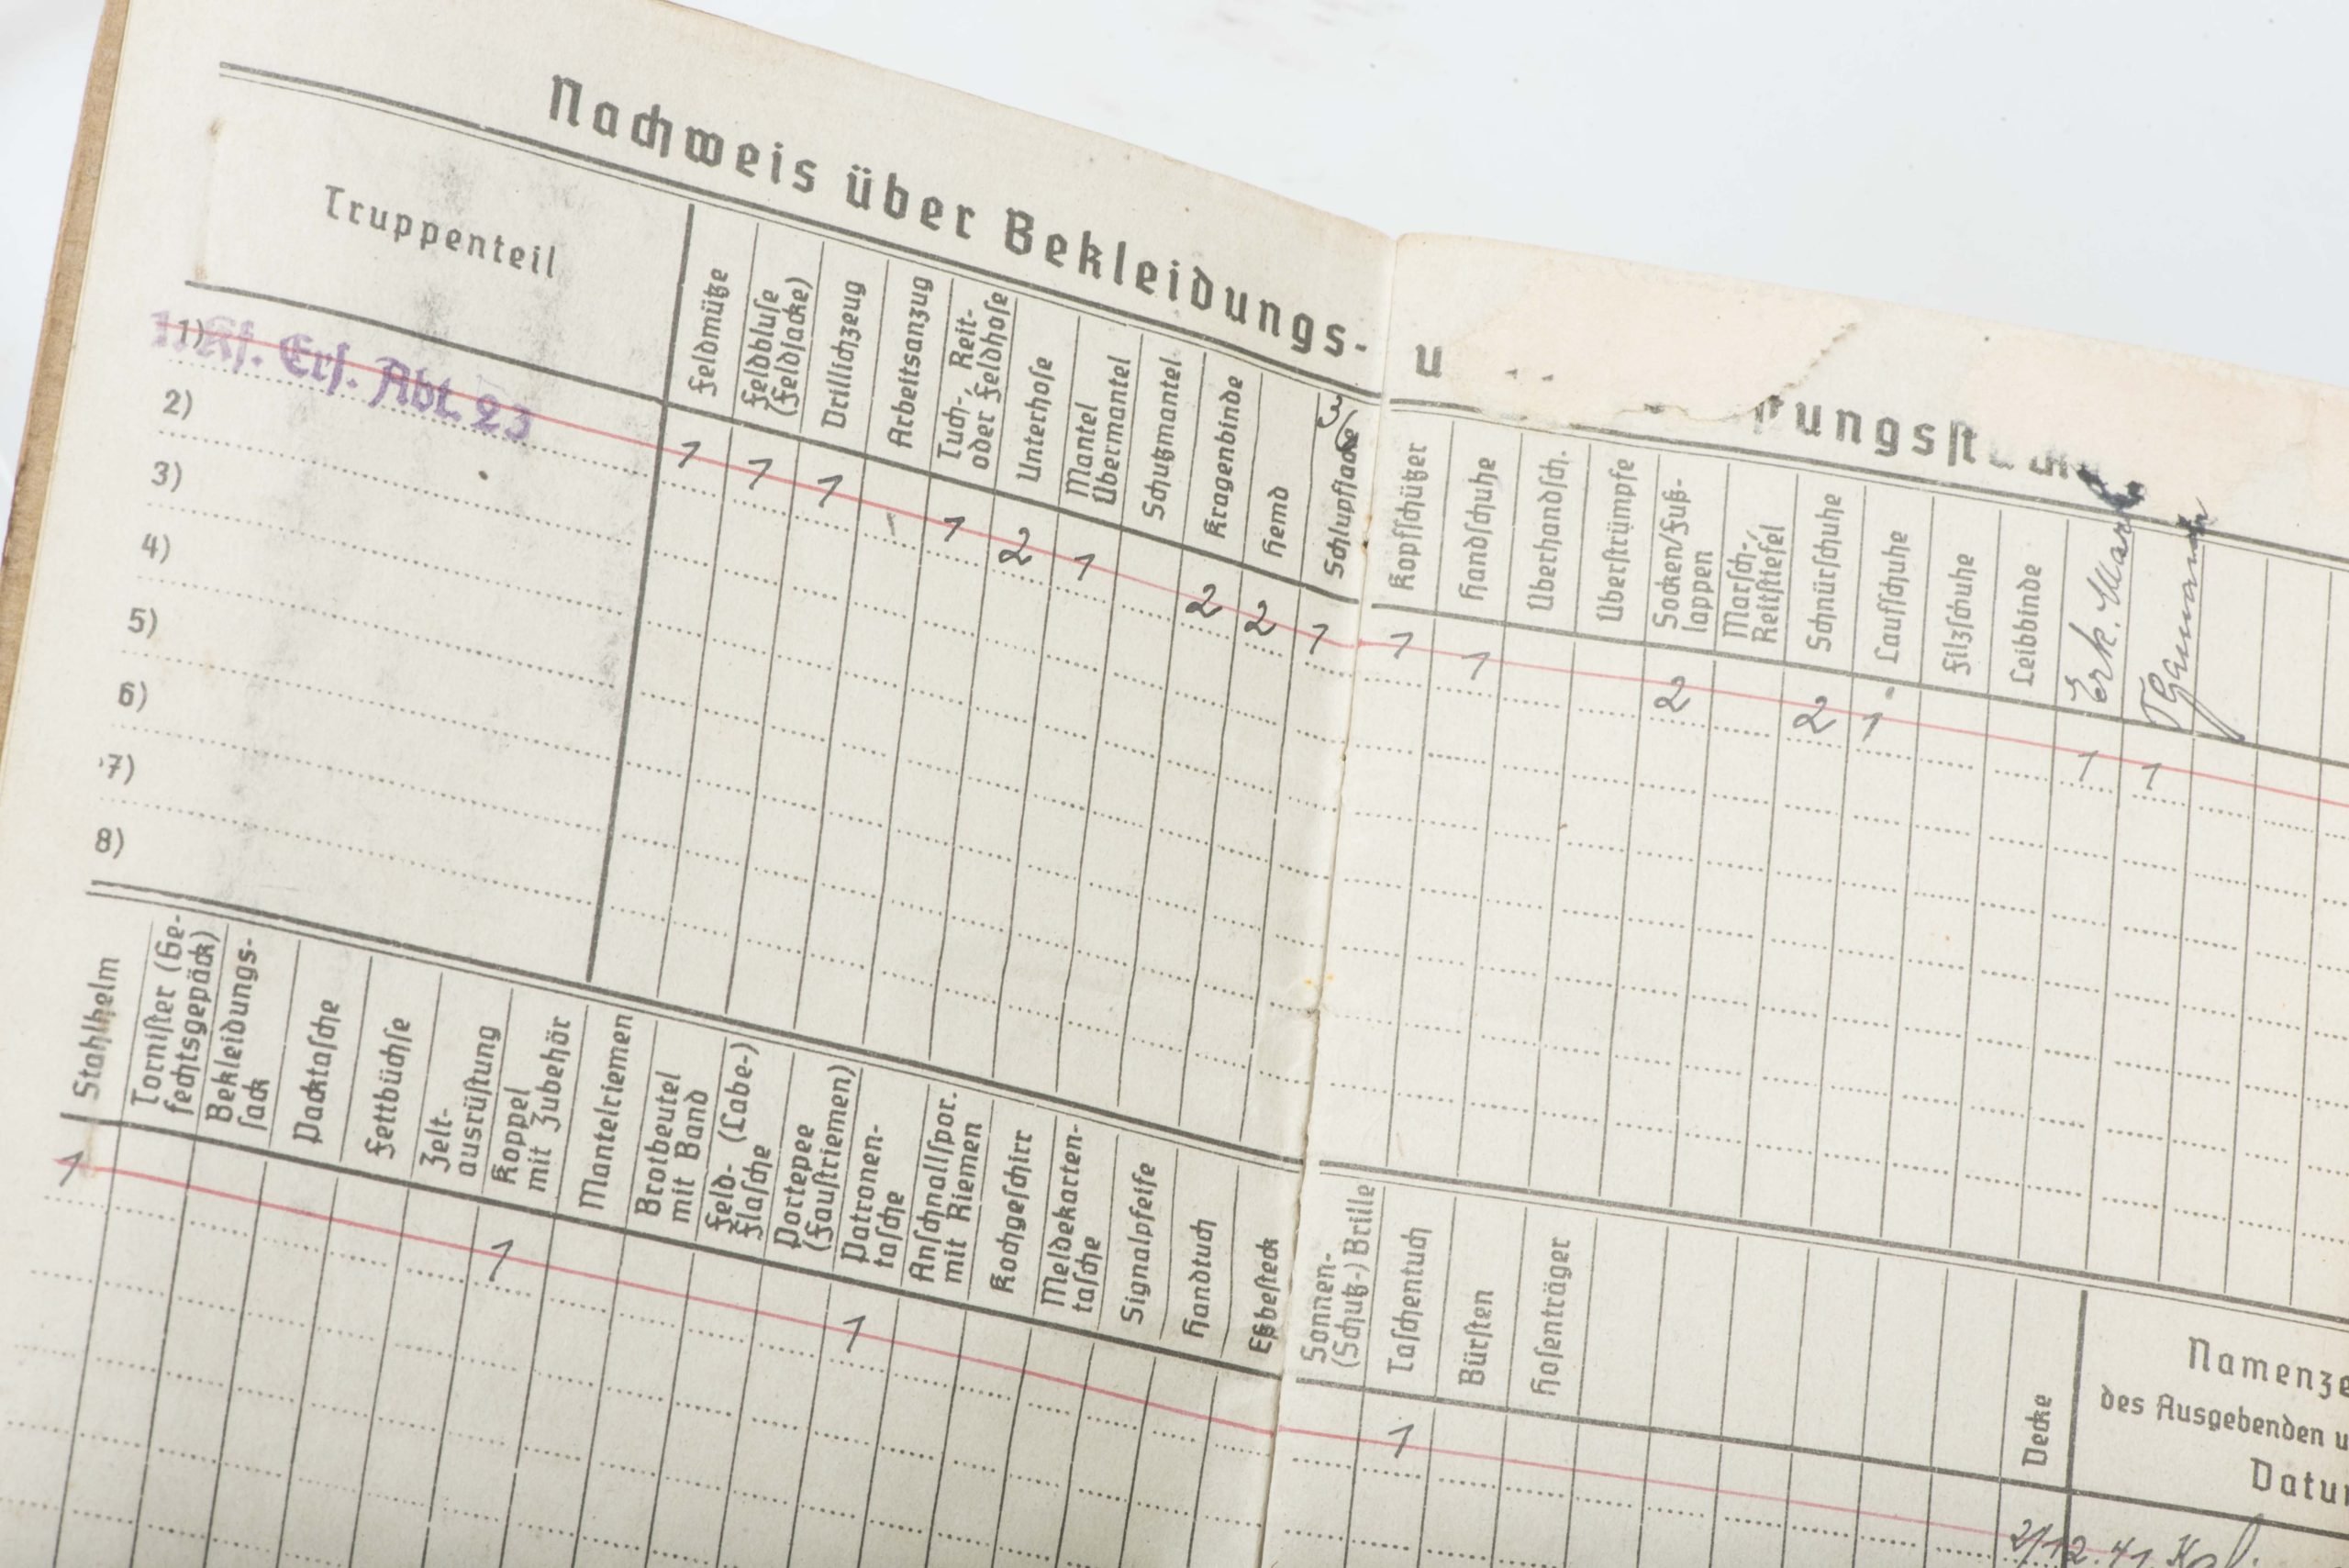 Nachweis über Bekleidungs- u
Truppenteil
Feldmütze
Feldbluſe
(Feldjacke)
Drillichzeug
Arbeitsanzug
Tuch-, Reit-
oder Feldhoſe
Unterhoſe
Mantel
Übermantel
Schutzmantel
Kragenbinde
Hemd
Schlupfjacke
Kopfſchützer
Handſchuhe
Überhandſch.
Überſtrümpfe
Socken/Fuß-
lappen
Marſch-,
Reitſtiefel
Schnürſchuhe
Laufſchuhe
Filzſchuhe
Leibbinde
Erk. Mark
1)
1. Kf. Erſ. Abt. 23
1 1 1 1 2 1 2 2 1 1 1 2 2 1 1 1
2)
3)
4)
5)
6)
7)
8)
Stahlhelm
Torniſter (Ge-
fechtsgepäck)
Bekleidungs-
ſack
Packtaſche
Fettbüchſe
Zelt-
ausrüſtung
Koppel
mit Zubehör
Mantelriemen
Brotbeutel
mit Band
Feld- (Labe-)
Flaſche
Portepee
(Fauſtriemen)
Patronen-
taſche
Anſchnallſpor.
mit Riemen
Kochgeſchirr
Meldekarten-
taſche
Signalpfeife
Handtuch
Eßbeſteck
Sonnen-
(Schutz-) Brille
Taſchentuch
Bürſten
Hoſenträger
Decke
Namenze
des Ausgebenden u
Datu
1 1 1 1
2/12.41.